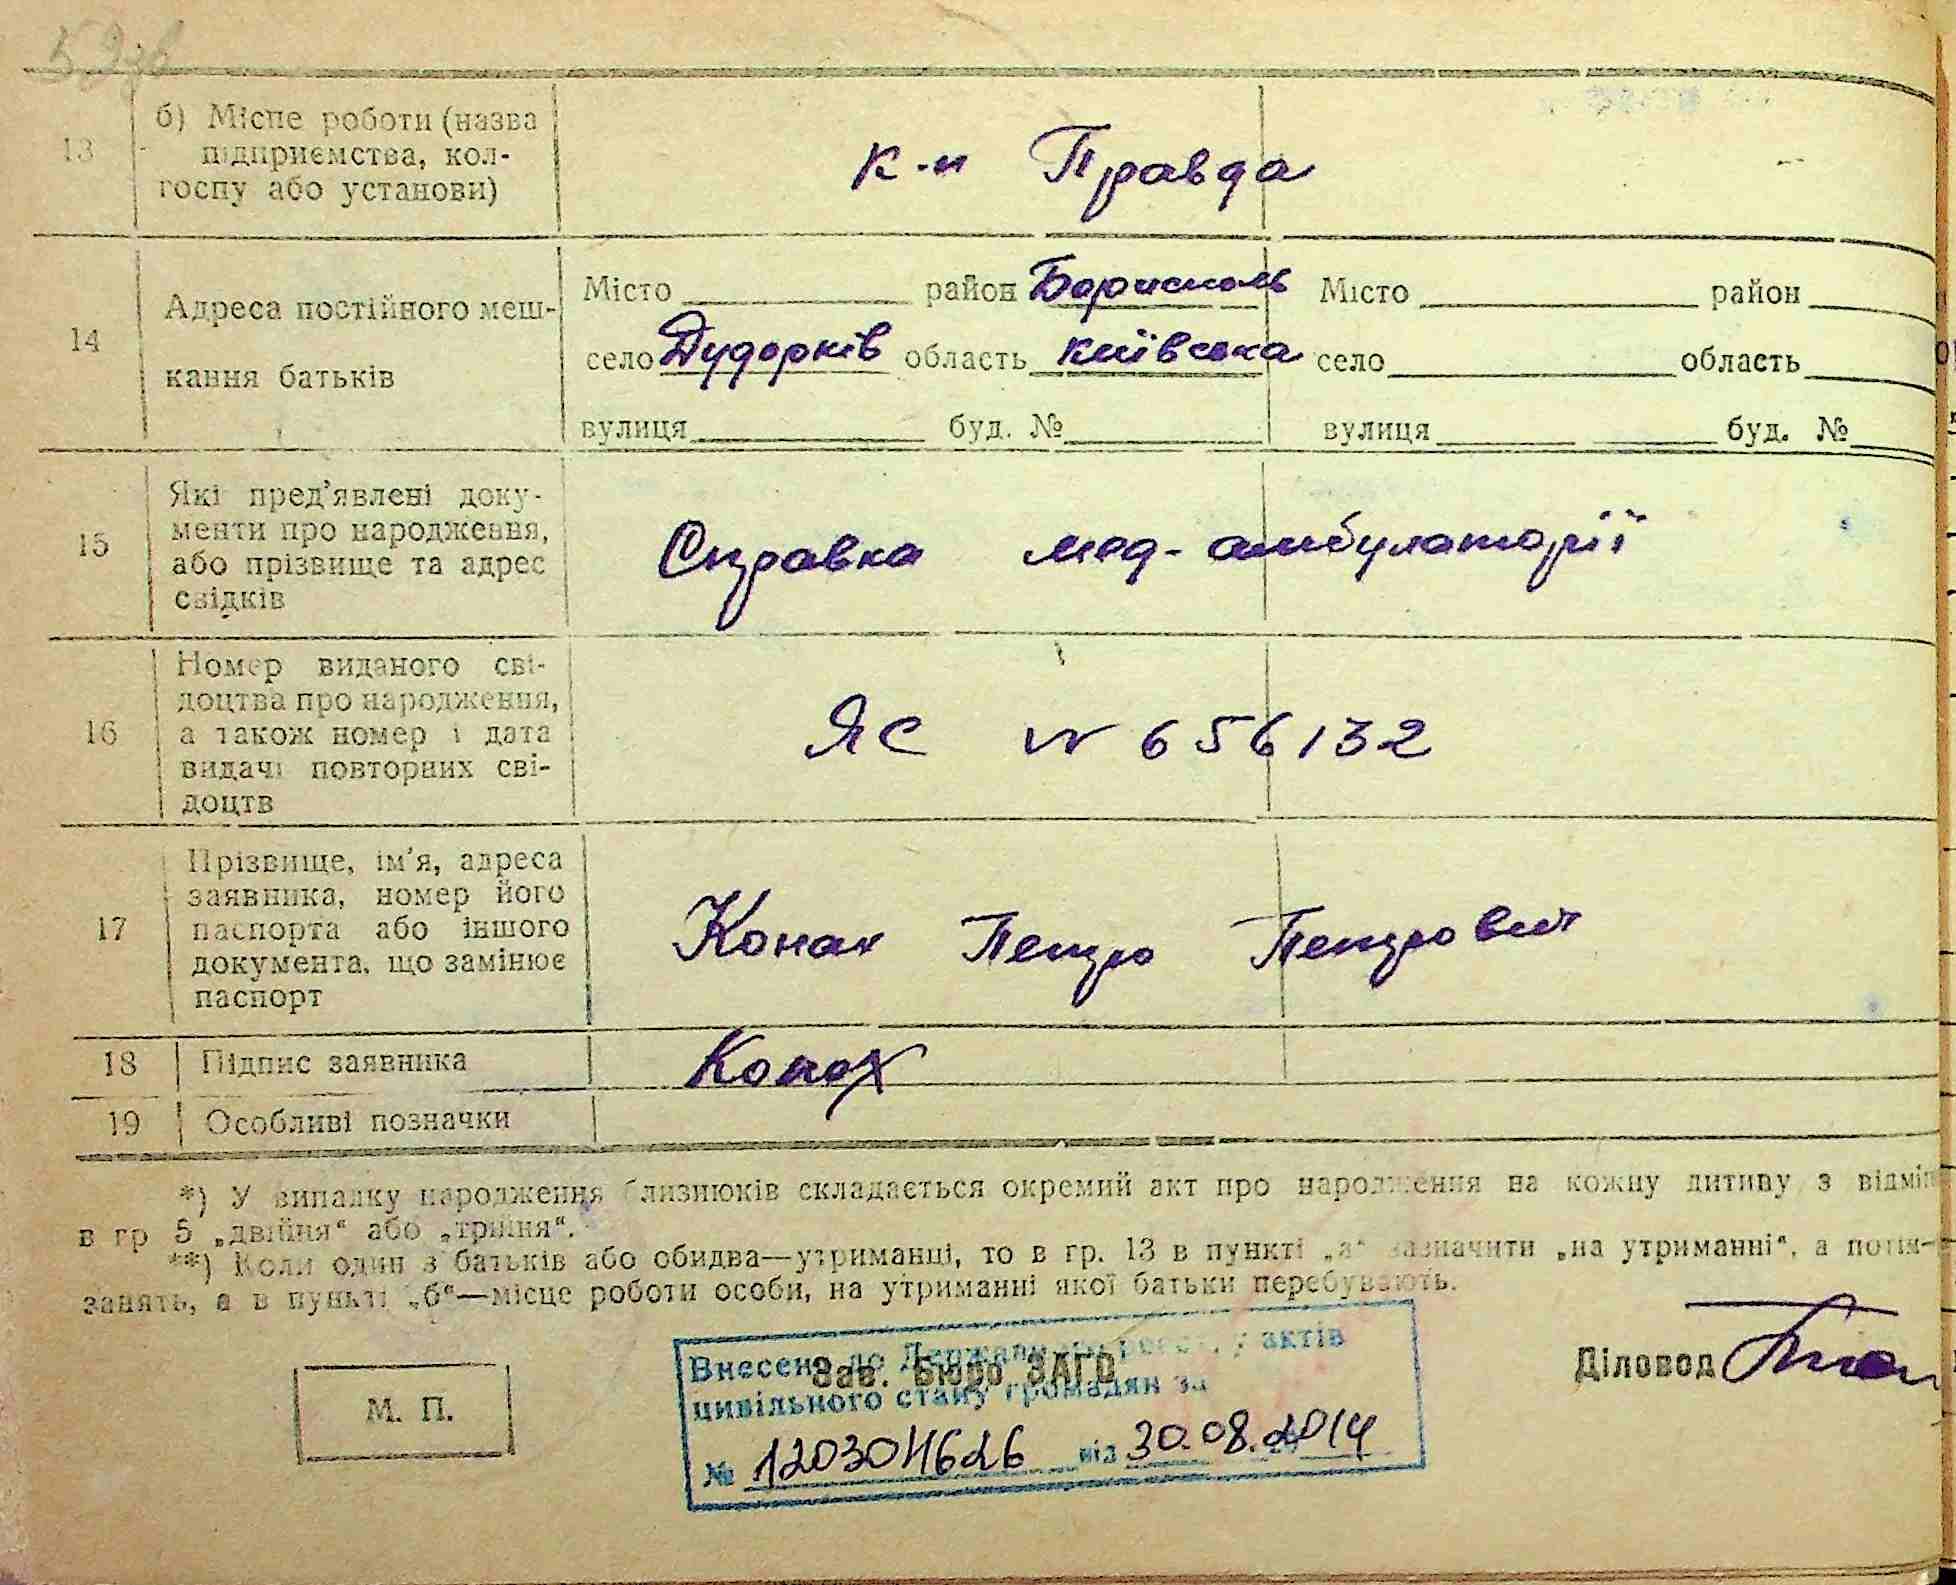 13
б) Місце роботи (назва
підприємства, кол-
госпу або установи)
к-п Правда
14
Адреса постійного меш-
кання батьків
Місто район Бориспол Місто район
село Дударків область київська село область
вулиця буд. № вулиця буд. №
15
Які пред’явлені доку-
менти про народження,
або прізвище та адрес
свідків
Справка мед-амбулаторії
16
Номер виданого сві-
доцтва про народження,
а також номер і дата
видачі повторних сві-
доцтв
ЯС № 656132
17
Прізвище, ім’я, адреса
заявника, номер його
паспорта або іншого
документа, що замінює
паспорт
Конах Петро Петрович
18
Підпис заявника
Конах
19
Особливі позначки
*) У випадку народження близнюків складається окремий акт про народження на кожну дитину з відміт
в гр 5 „двійня“ або „трійня“.
**) Коли один з батьків або обидва—утриманці, то в гр. 13 в пункті „а“ зазначити „на утриманні“, а потім—
занять, а в пункті „б“—місце роботи особи, на утриманні якої батьки перебувають.
М. П.
Зав. Бюро ЗАГС
Внесено до Державного реєстру актів
цивільного стану громадян за
№ 120304626 від 30.08.2014
Діловод